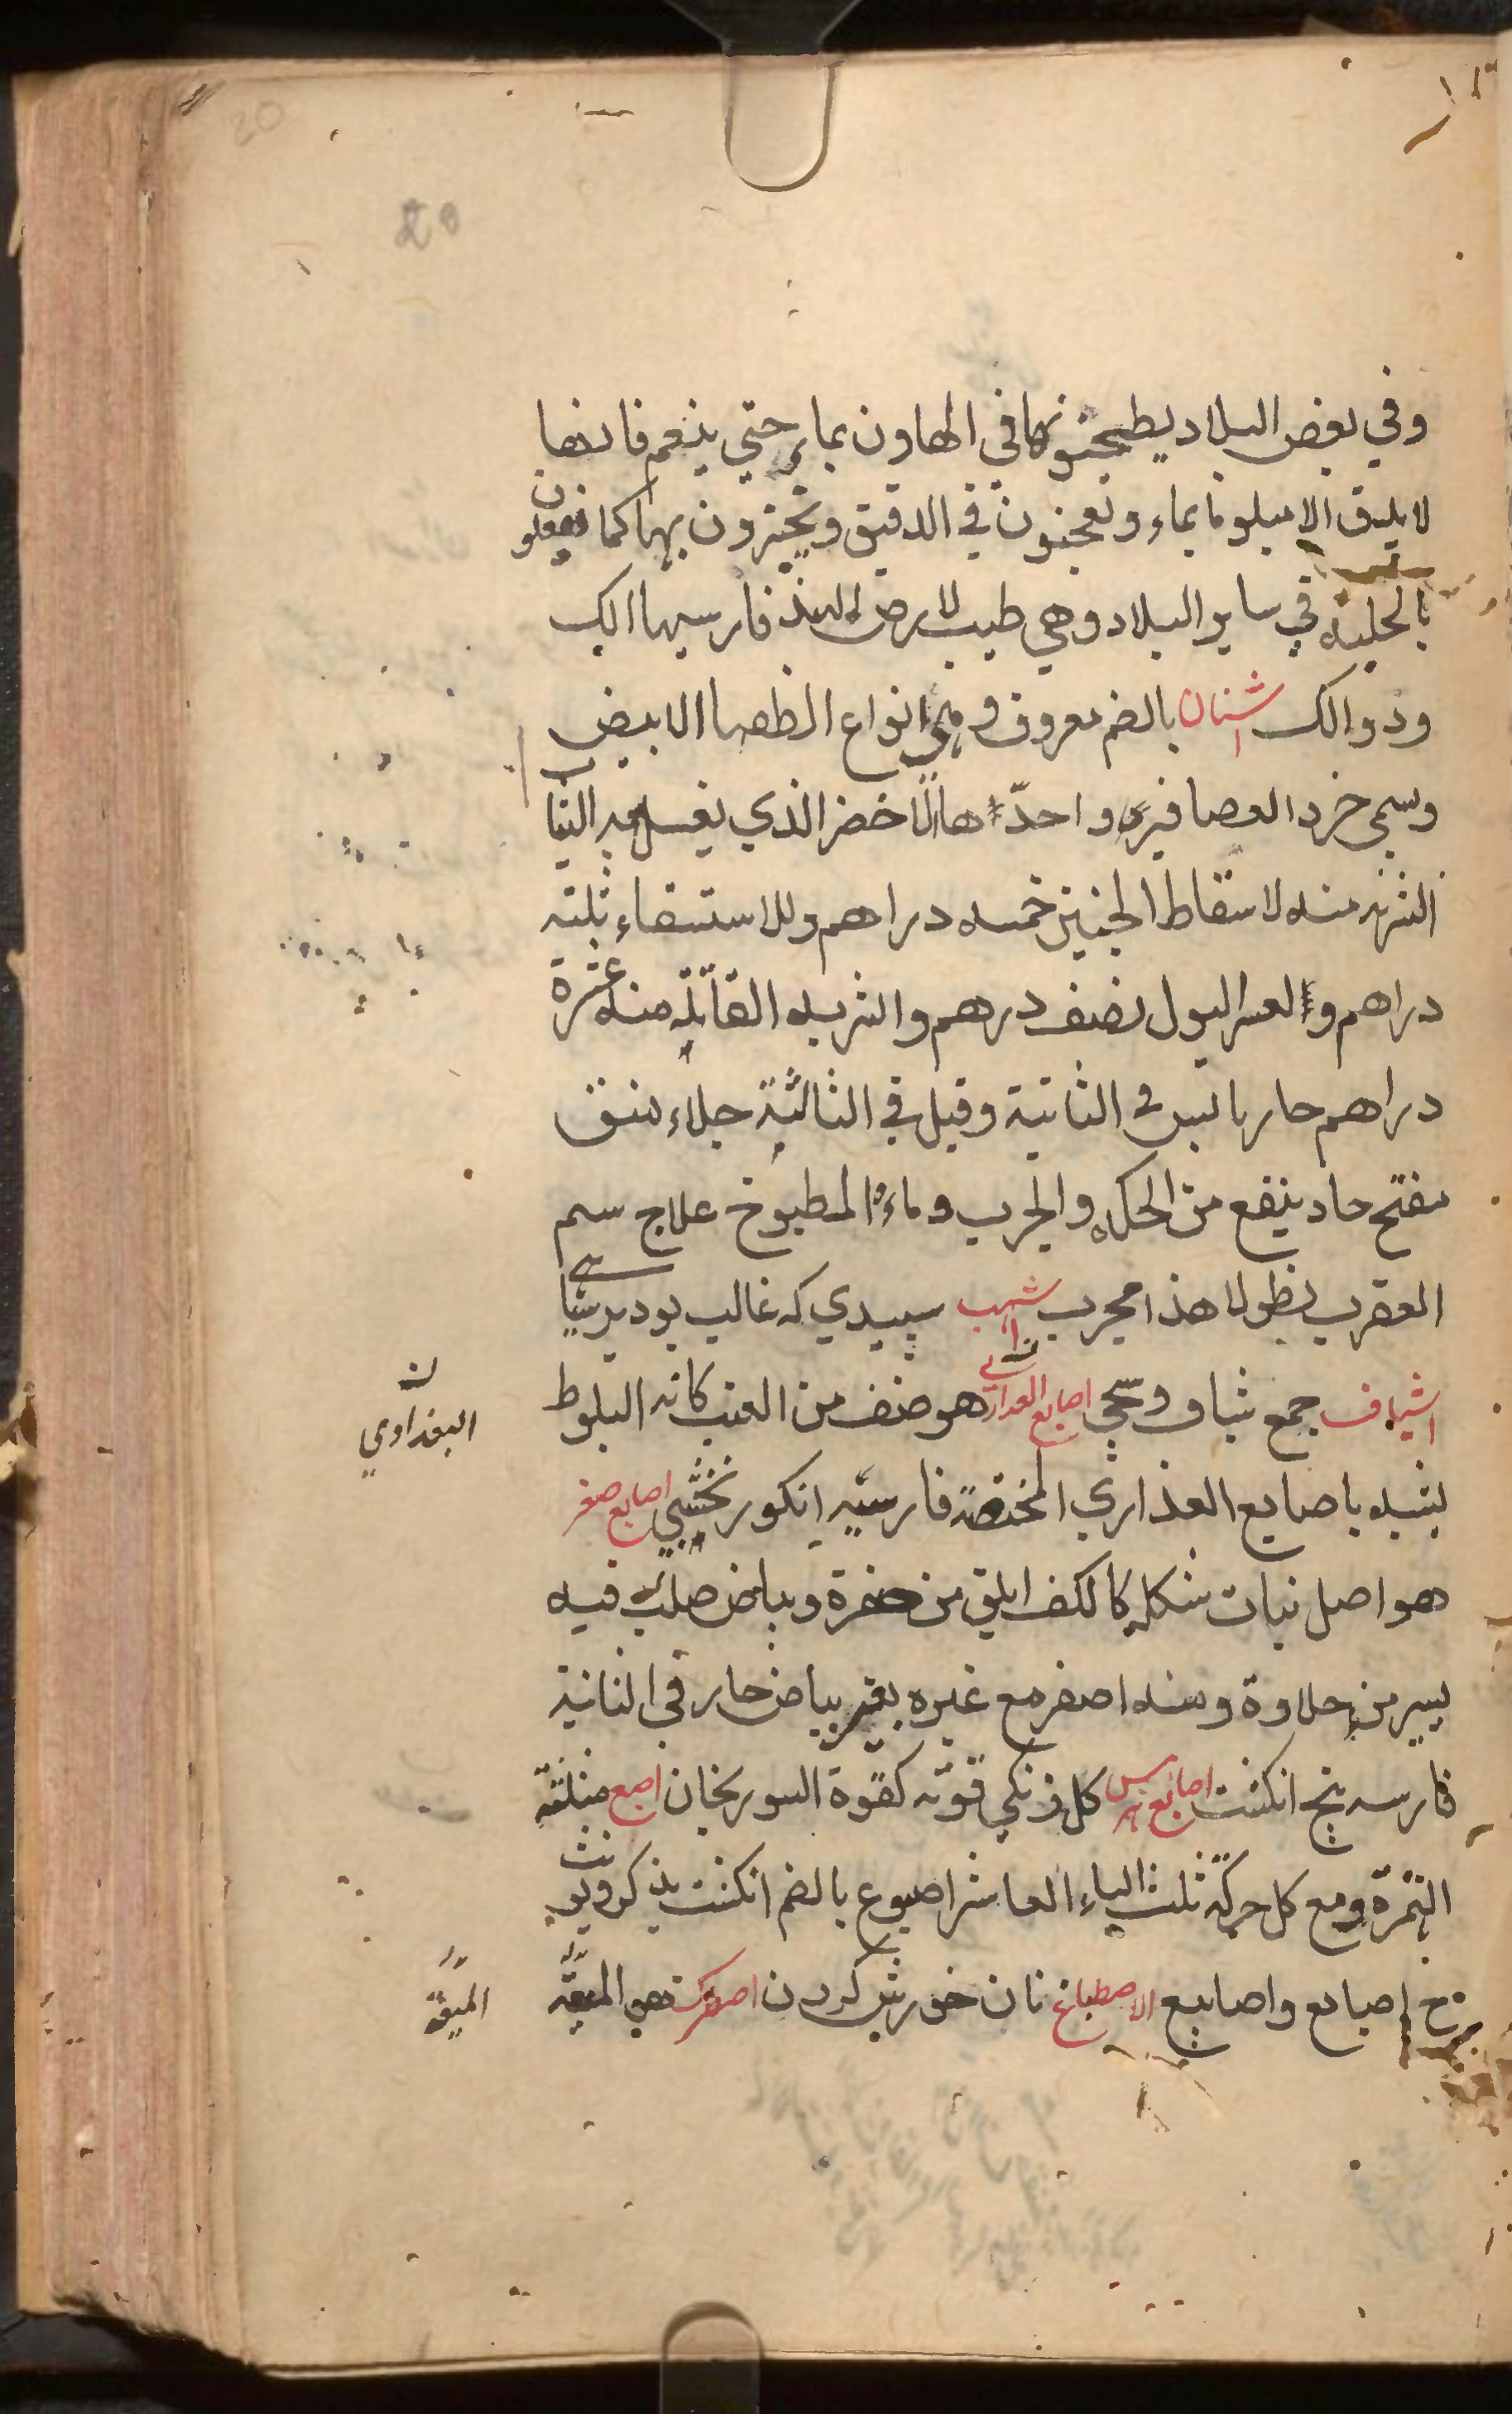 وفي بعض البلاد يطحنونها في الهاون بماء حتى ينعم فانها
لا يليق الا مبلونا بماء ويعجنون في الدقيق ويخبزون بهما كما يفعلون
بالحلبه في ساير البلاد وهي طيب لارض الهند فارسيها الك
ودوالك اشنان بالضم معروف وهي انواع الطفها الابيض
وسمى خرد العصافير واحدّها الاخضر الذي يغسل به الثياب
الشربه منه لاسقاط الجنين خمسه دراهم وللاستسقاء ثلثه
دراهم ولعسر البول نصف درهم والشربه القاتله منه عشرة
دراهم حار يابس في الثانية وقيل في الثالثية جلاء منق
مفتح حاد ينفع من الحكه والجرب وماء المطبوخ علاج سم
العقرب نطولا هذا مجرب اشهب سپيدي كه غالب بود بر سياهي
اشياف جمع شياف وسمى اصابع العذارى هو صنف من العنب كانه البلوط
يشبه باصابع العذارى المختضبة فارسيه انكور نخشبي اصابع صفر
هو اصل نبات شكله كالكف ابلق من صفرة وبياض صلب فيه
يسير من حلاوة ومنه اصفر مع غيره بغير بياض حار في الثانية
فارسه پنج انكشت اصابع هرمس كل فرنكي قوته كقوة السورنجان اصبع مثلثة
الهمزة ومع كل حركة ثلث الباء العاشر اصبوع بالضم انكشت يذكر ويونث
ج اصابع واصابيع الاصطباغ نان خورش كردن اصطرك هي الميعة
ن
البغداوي
الميعة